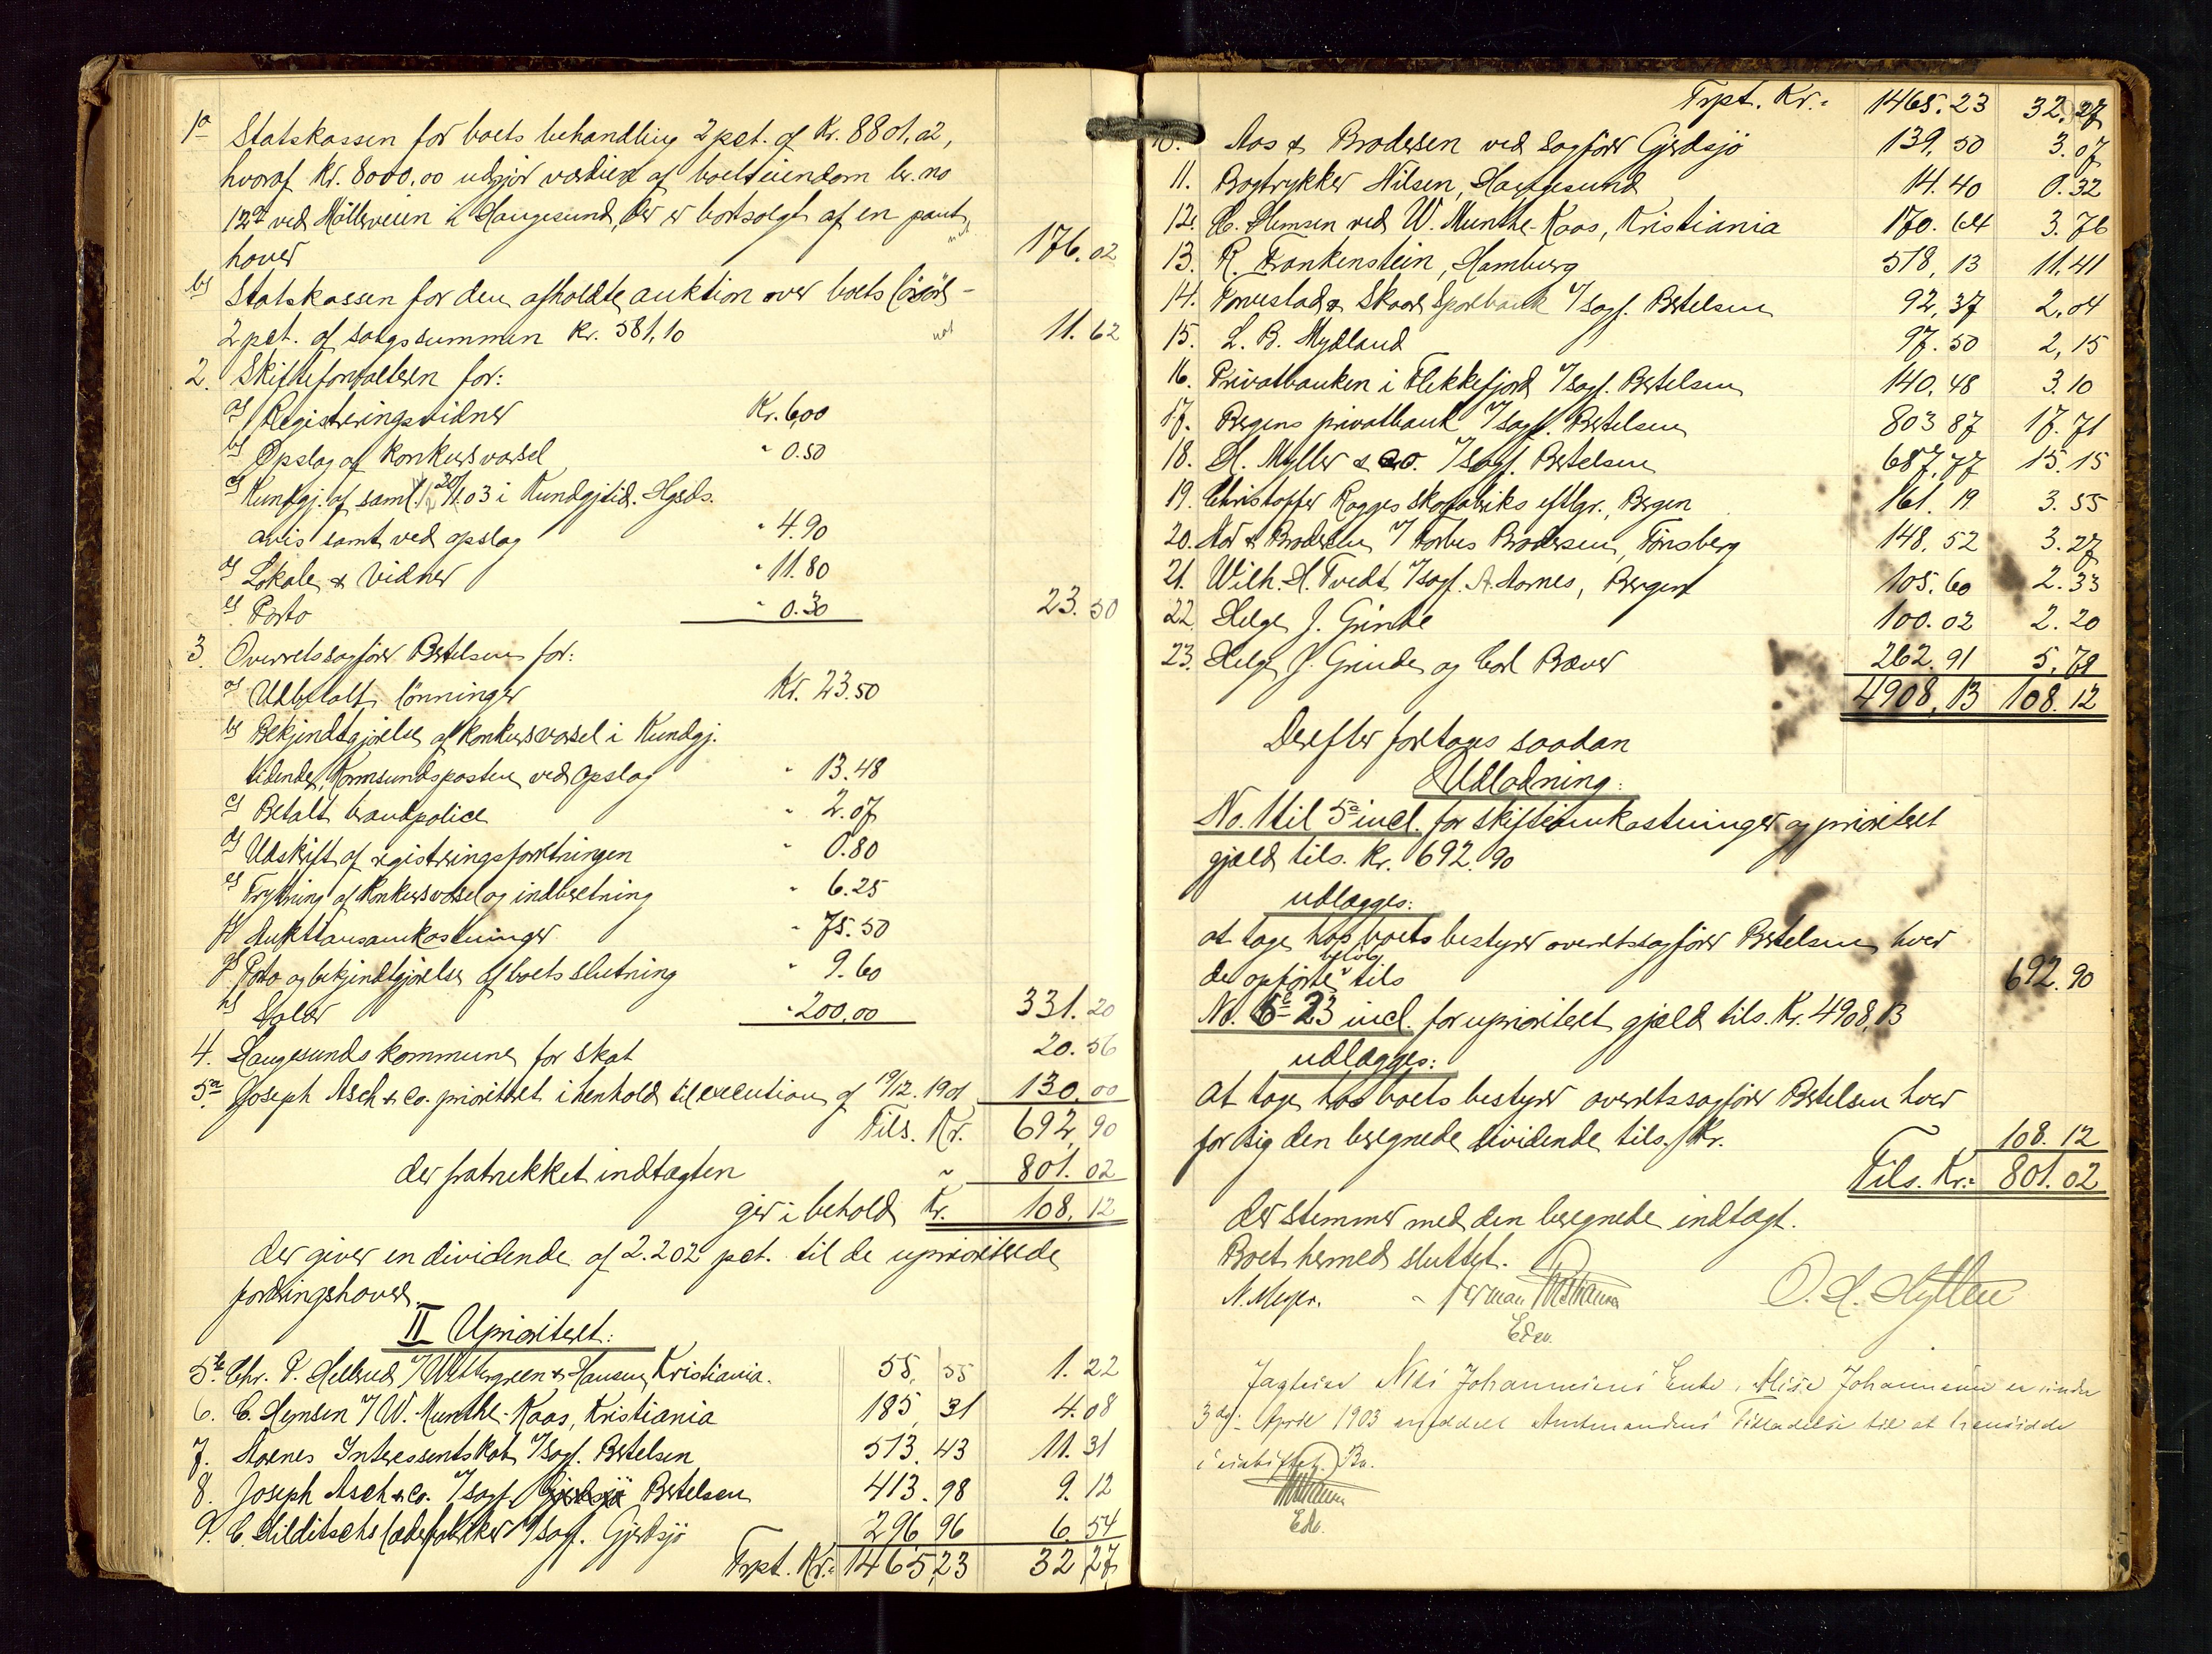 1a Statskassen for boets behandling 2 pct. af Kr. 8801,02,
hvoraf Kr. 8000,00 udgjør værdien af boets eiendom br. no
122 ved Mølleveien i Haugesund, der er bortsolgt af en pant
haver 176.02
b) Statskassen for den afholdte auktion over boets løsøre -
2 pct. af salgssummen Kr. 581,10 11.62
2. Skifteforvalteren for:
a) Registreringsvidner Kr. 6,00
b) Opslag af konkursvarsel " 0.50
c) Kundgj. af saml. 20/1.03 i Kundgjtid. Hgsds.
avis samt ved opslag " 4.90
d) Lokale & vidner " 11.80
e) Porto " 0.30 23.50
3. Overretssagfører Bertelsen for:
a) Udbetalt lønninger Kr. 23.50
b) Bekjendtgjørelse af konkursvarsel i Kundgj.
tidende, Karmsundsposten ved opslag " 13.48
c) Betalt brandpolice " 2.07
d) Udskrift af registreringsforretningen " 0.80
e) Trykning af konkursvarsel og indberetning " 6.25
f) Auktionsomkostninger " 75.50
g) Porto og bekjendtgjørelse af boets slutning " 9.60
h) Salær " 200,00 331.20
4. Haugesunds kommune for skat 20.56
5a Joseph Asch & Co. prioritet i henhold til execution af 19/12. 1901 130.00
Tils. Kr. 692,90
der fratrukket indtægten " 801.02
gir i behold Kr. 108.12
der giver en dividende af 2.202 pct. til de uprioriterede
fordringshavere.
II Uprioritert:
5b Chr. P. Hellerud v/ Wettergreen & Hansen, Kristiania. 55,55 1.22
6. C. Hemsen v/ W. Munthe-Kaas, Kristiania 185,31 4.08
7. Aarnes Interessentskab v/ sagf. Bertelsen 513.43 11.31
8. Joseph Asch & Co. v/ sagf. Bertelsen 413.98 9.12
9. C. Hilditschs læderfabriker v/ sagf. Gjerdsjø 296,96 6.54
Trpt. Kr.: 1465,23 32,27
Trpt. Kr.: 1465.23 32,27
10. Aas & Brodersen ved sagfører Gjerdsjø 139,50 3.07
11. Bogtrykker Nilsen, Haugesund 14.40 0.32
12. C. Hemsen ved W. Munthe-Kaas, Kristiania 170.64 3.76
13. R. Frankenstein, Hamburg 518,13 11,41
14. Torvestad & Skaare Sparebank v/ sagf. Bertelsen 92,37 2,04
15. L. B. Mydland 97.50 2,15
16. Privatbanken i Flekkefjord v/ sagf. Bertelsen 140,48 3.10
17. Bergens privatbank v/ sagf. Bertelsen 803 87 17.71
18. H. Myller & Co. v/ sagf. Bertelsen 687,77 15.15
19. Christoffer Ragges skofabriks eftflgr., Bergen 161.19 3.55
20. Aas & Brodersen v/ Forbes Brodersen, Tønsberg 148,52 3.27
21. Wilh. H. Tvedt v/ sagf. A. Aarnes, Bergen 105.60 2.33
22. Helge J. Grinde 100.02 2.20
23. Helge J. Grinde og Carl Bæver 262.91 5.79
4908,13 108.12
Derefter foretages saadan
Udlodning:
No. 1 til 5a incl. for skifteomkostninger og prioritert
gjæld tils. Kr. 692.90
udlægges:
at tage hos boets bestyrer overretssagfører Bertelsen hver
de opførte beløb tils 692.90
No. 5b-23 incl. for uprioritert gjæld tils. Kr. 4908,13
udlægges:
at tage hos boets bestyrer overretssagfører Bertelsen hver
for sig den beregnede dividende tils. Kr. 108.12
Tils. Kr.: 801.02
der stemmer med den beregnede indtægt.
Boet hermed sluttet.
N. Meyer. O. H. Hytten
Edsv.
3 dg. April 1903 meddelt Amtmandens Tilladelse til at hensidde
Edv.